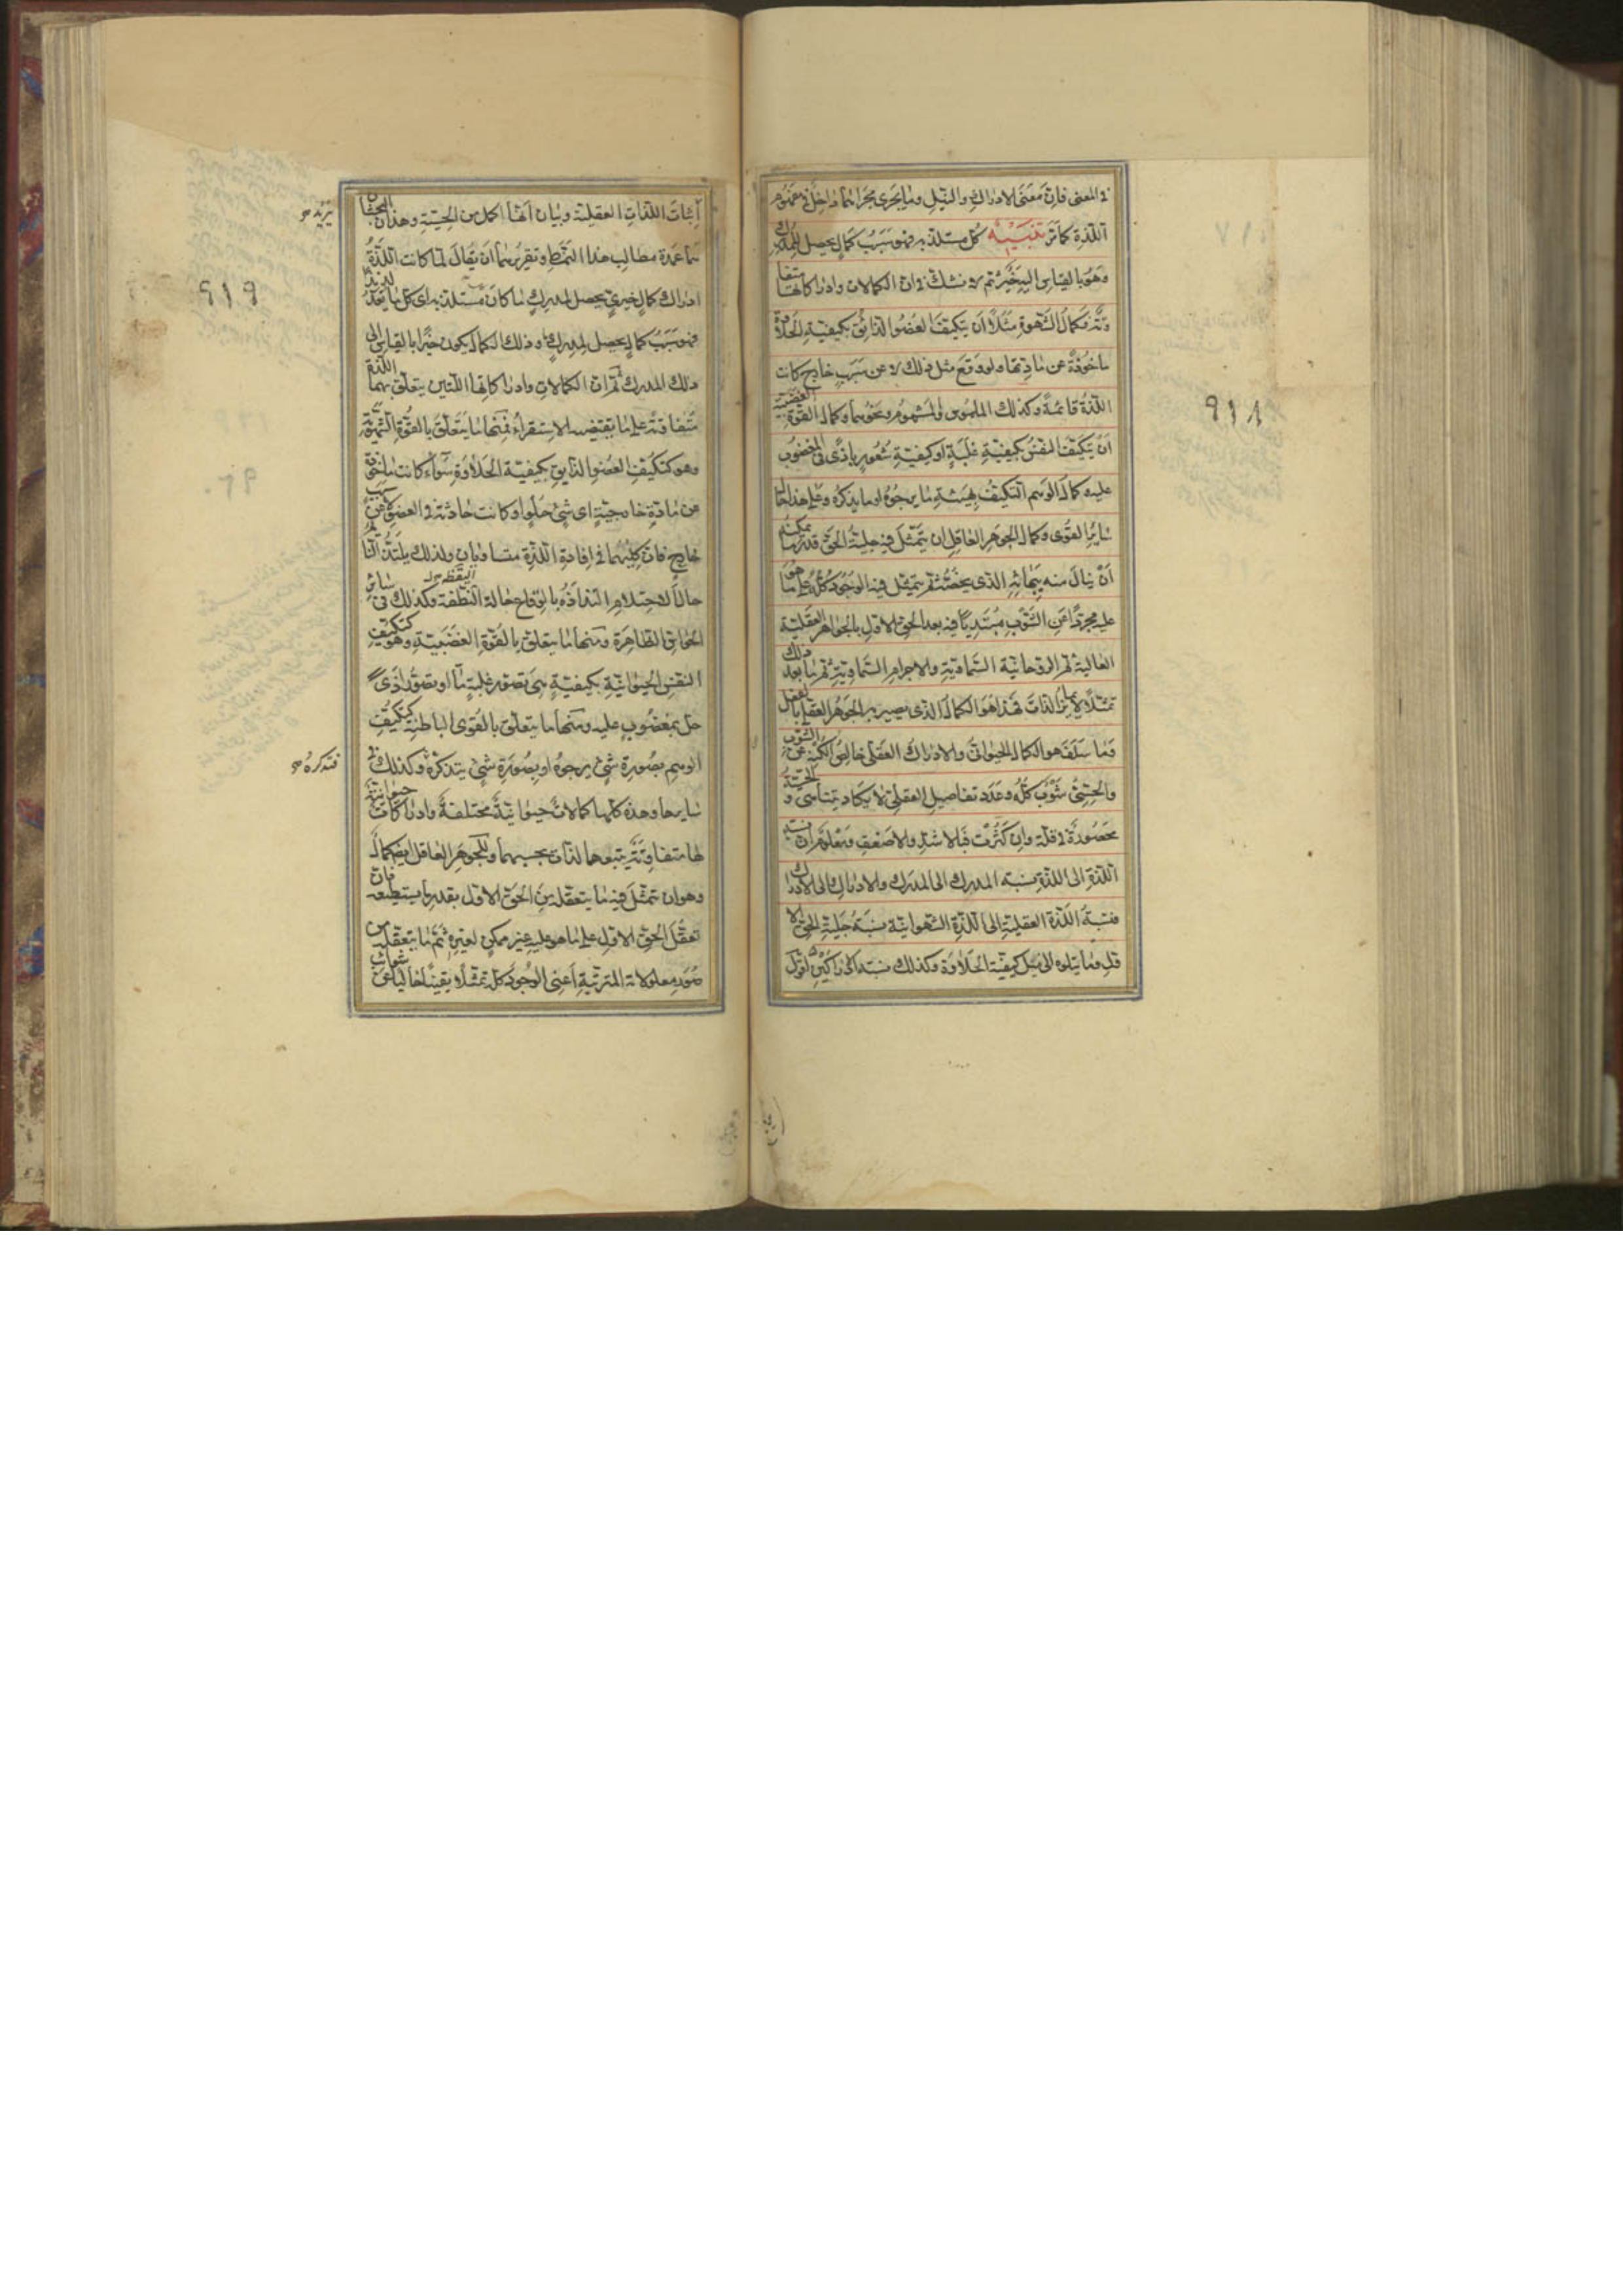 فى المعنى فان معنى الادراك والنيل وما يجرى مجراهما داخل فى مفهوم
اللذة كما مر تنبيه كل مستلذ به فهو سبب كمال يحصل للمدرك
وهو بالقياس اليه خير ثم لا نشك فى ان الكمالات وادراكاتها متفا
وتة فكمال الشهوة مثلا ان يتكيف العضو الذائق بكيفية الحلاوة
ماخوذة عن مادتها ولو وقع مثل ذلك لا عن سبب خارج كانت
اللذة قائمة وكذلك الملموس والمشموم ونحوهما وكمال القوة الغضبية
ان يتكيف النفس بكيفية غلبة او كيفية شعور باذى فى المغضوب
عليه وكمال الوهم التكيف بهيئة ما يرجوه او ما يذكره وعلى هذا حال
سائر القوى وكمال الجوهر العاقل ان يتمثل فيه جلية الحق قدر ما يمكنه
ان ينال منه ببهائه الذى يخصه ثم يتمثل فيه الوجود كله على ما هو
عليه مجردا عن الشوب مبتديا فيه بعد الحق الاول بالجواهر العقلية
العالية ثم الروحانية السماوية والاجرام السماوية ثم ما بعد ذلك
تمثلا لا يمايز الذات فهذا هو الكمال الذى يصير به الجوهر العقلى بالفعل
وما سلف هو الكمال الحيوانى والادراك العقلى خالص الكنه عن الشوب
والحسى شوب كله وعدد تفاصيل العقلى لا يكاد يتناهى و الحسية
محصورة فى قلة وان كثرت فبالاشد والاضعف ومعلوم ان نسبة
اللذة الى اللذة نسبة المدرك الى المدرك والادراك الى الادراك
فنسبة اللذة العقلية الى اللذة الشهوانية نسبة جلية الحق الا
ول وما يتلوه الى نيل كيفية الحلاوة وكذلك نسبة الادراكين اقول
٩١٨
اثبات اللذات العقلية وبيان انها اكمل من الحسية وهذان البحثان
هما عمدة مطالب هذا النمط وتقريرهما ان يقال لما كانت اللذة
ادراك كمال خيرى يحصل لمدرك ما كان مستلذ به اى كل ما يعد لذيذا
فهو سبب كمال يحصل لمدرك وذلك الكمال يكون خيرا بالقياس الى
ذلك المدرك ثم ان الكمالات وادراكاتها اللتين يتعلق بهما اللذة
متفاوتة على ما يقتضيه الاستقراء فمنها ما يتعلق بالقوة الشهوية
وهو كتكيف العضو الذايق بكيفية الحلاوة سواء كانت ماخوذة
عن مادة خارجية اى شئ حلو او كانت حادثة فى العضو لا عن سبب
خارج فان كليهما فى افادة اللذة متساويان ولذلك يلتذ النائم
حال الاحتلام التذاذه بالوقاع حالة اليقظة وكذلك فى سائر
الحواس الظاهرة ومنها ما يتعلق بالقوة الغضبية وهو كتكيف
النفس الحيوانية بكيفية هى تصور غلبة ما او تصور اذى
حل بمغضوب عليه ومنها ما يتعلق بالقوى الباطنة كتكيف
الوهم بصورة شئ يرجوه او بصورة شئ يتذكره وكذلك فى
سايرها وهذه كلها كمالات حيوانية مختلفة وادراكات حيوانية
لها متفاوتة يتبعها لذات بحسبها وللجوهر العاقل ايضا كمال
وهو ان تمثل فيه ما يتعقله من الحق الاول بقدر ما يستطيعه فان
تعقل الحق الاول على ما هو عليه غير ممكن لغيره ثم ما يتعقله من
صور معلولاته المترتبة اعنى الوجود كله تمثلا يقينيا خاليا عن شوائب
يريد
٩١٩
فتذكره